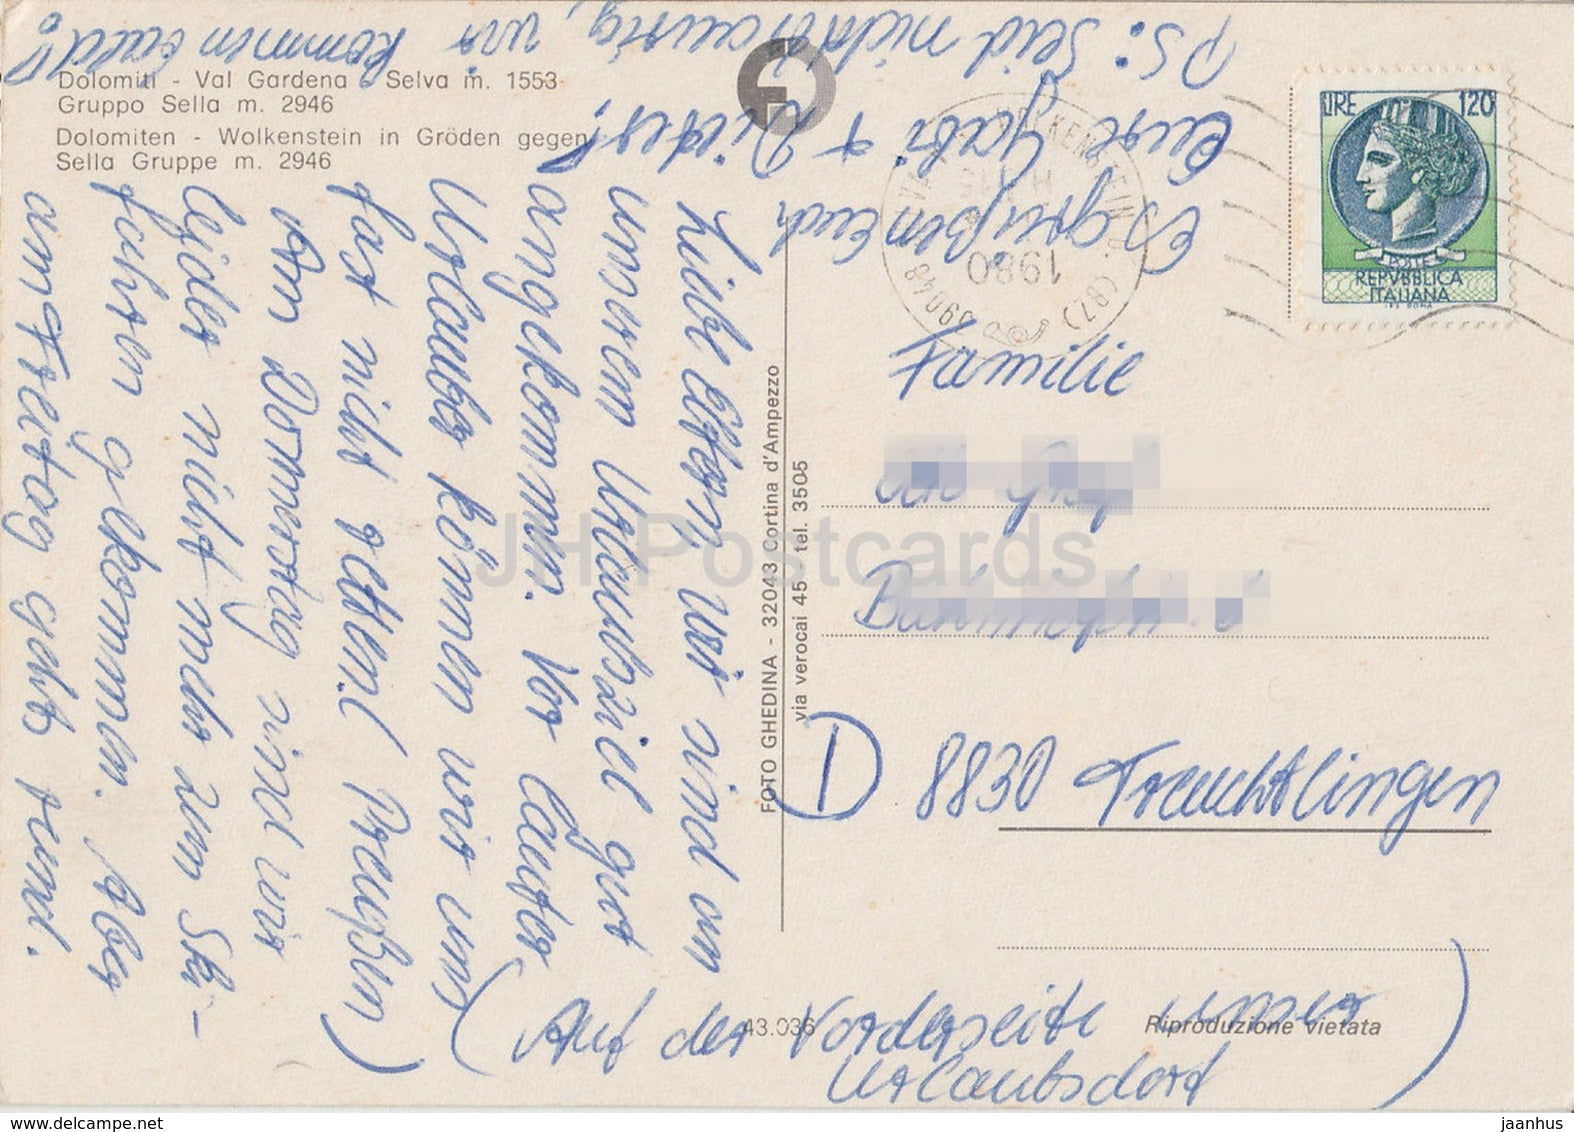 Dolomiti - Val Gardena Selva m. 1553
Gruppo Sella m. 2946
Dolomiten - Wolkenstein in Gröden gegen
Sella Gruppe m. 2946
Liebe Eltern, wir sind an
unserem Urlaubsziel gut
angekommen. Vor lauter
Urlauber können wir uns
fast nicht retten! Preußen)
Am Donnerstag sind wir
leider nicht mehr zum Ski-
fahren gekommen. Aber
am Freitag gehts rund.
Es grüßen Euch
Eure Gabi + Dieter!
PS: Seid nicht traurig, wir kommen bald!
(Auf der Vorderseite unser
Urlaubsdorf)
FOTO GHEDINA - 32043 Cortina d'Ampezzo
via verocai 45 tel. 3505
43.036
Riproduzione vietata
LIRE 120
POSTE
REPVBBLICA
ITALIANA
WOLKENSTEIN
(BZ)
39048
1980
Familie
D 8830 Treuchtlingen
JH Postcards
www.jaanhus.com